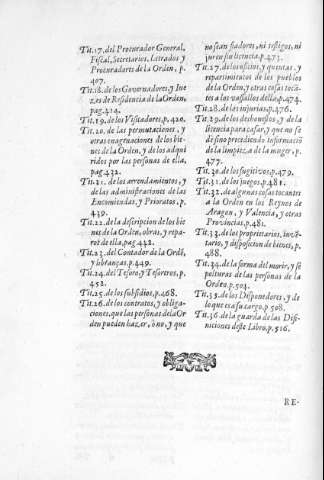 Tit.17. del Procurador General,
Fiscal, Secretarios, Letrados y
Procuradores de la Orden, p.
407.
Tit.18. de los Governadores y Iue
zes de Residencia de la Orden,
pag.414.
Tit.19. de los Visitadores, p.420.
Tit.20. de las permutaciones, y
otras enagenaciones de los bie
nes de la Orden, y de los adqui
ridos por las personas de ella,
pag.432.
Tit.21. de los arrendamientos, y
de las administraciones de las
Encomiendas, y Prioratos, p.
439.
Tit.22. de la descripcion de los bie
nes de la Orden, obras, y repa-
ros de ella, pag.442.
Tit.23. del Contador de la Ordē,
y libranças, p.449.
Tit.24. del Tesoro, y Tesoreros, p.
452.
Tit.25. de los subsidios, p.468.
Tit.26. de los contratos, y obliga-
ciones, que las personas de la Or
den pueden hazer, ò no, y que
no sean fiadores, ni testigos, ni
juren sin licencia, p.473.
Tit.27. de los oficios, y quentas, y
repartimientos de los pueblos
de la Orden, y otras cosas tocā-
tes a los vassallos della, p.474.
Tit.28. de los injurias, p.476.
Tit.29. de los deshonestos, y de la
licencia para casar, y que no se
dè sino precediendo informació
de la limpieza de la muger, p.
477.
Tit.30. de los fugitivos, p.479.
Tit.31. de los juegos, p.481.
Tit.32. de algunas cosas tocantes
a la Orden en los Reynos de
Aragon, y Valencia, y otras
Provincias, p.481.
Tit.33. de los proprietarios, invē-
tario, y disposicion de bienes, p.
488.
Tit.34. de la forma del morir, y se
pulturas de las personas de la
Orden, p.504.
Tit.35. de los Disponedores, y de
lo que es a su cargo, p.508.
Tit.36. de la guarda de las Difi-
niciones deste Libro, p.516.
RE-